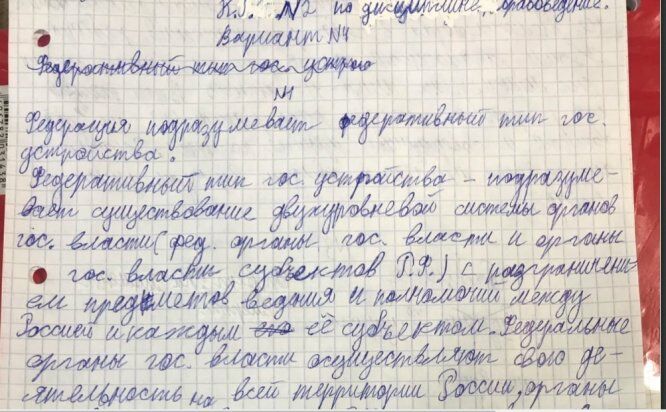 К.Р. №2 по дисциплине, правоведение.
Вариант №4
Федеративный тип гос. устрой
№1
Федерация подразумевает федеративный тип гос.
устройства.
Федеративный тип гос. устройства – подразуме-
вает существование двухуровневой системы органов
гос. власти (фед. органы гос. власти и органы
гос. власти субъектов Р.Ф.) с разграничени-
ем предметов ведения и полномочий между
Россией и каждым её субъектом. Федеральные
органы гос. власти осуществляют свою де-
ятельность на всей территории России, органы